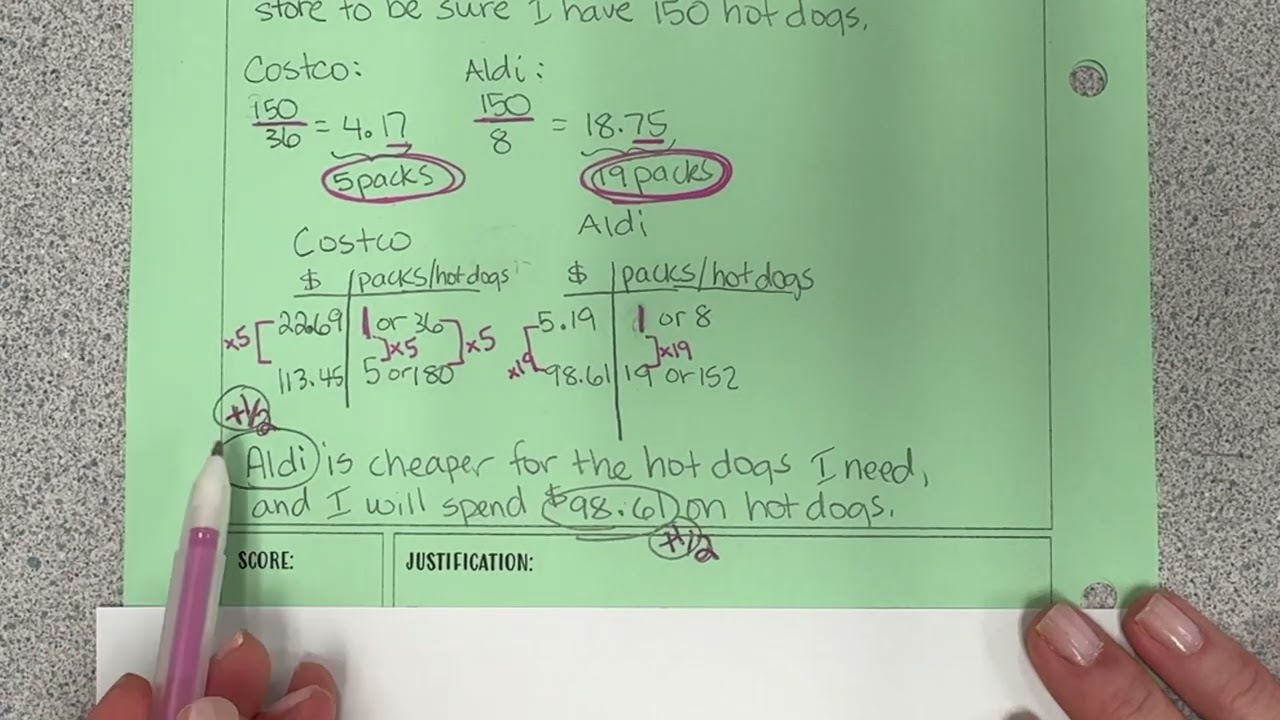 store to be sure I have 150 hot dogs.
Costco: Aldi:
150/36 = 4.17 150/8 = 18.75
5 packs 19 packs
Costco Aldi
$ packs/hotdogs $ packs/hotdogs
x5 22.69 1 or 36 x5 5.19 1 or 8
x5 x19
113.45 5 or 180 x19 98.61 19 or 152
+1/2
Aldi is cheaper for the hot dogs I need,
and I will spend $98.61 on hot dogs.
+1/2
SCORE: JUSTIFICATION: